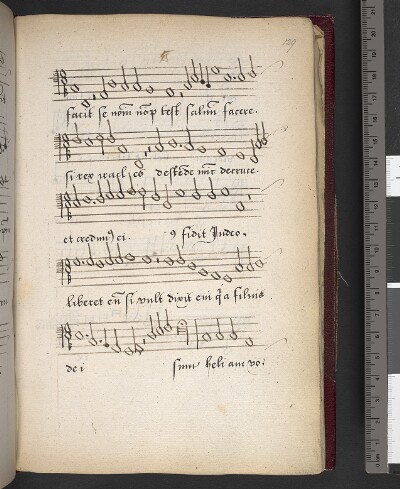 129
facit se nom nop test saluu facere.
si rex israel est desfede mr de cruce.
et credimꝰ ei. ꝯ fidit Indeo,
liberet eū si vult dixit em q̄a filius
dei sum heli am vo: